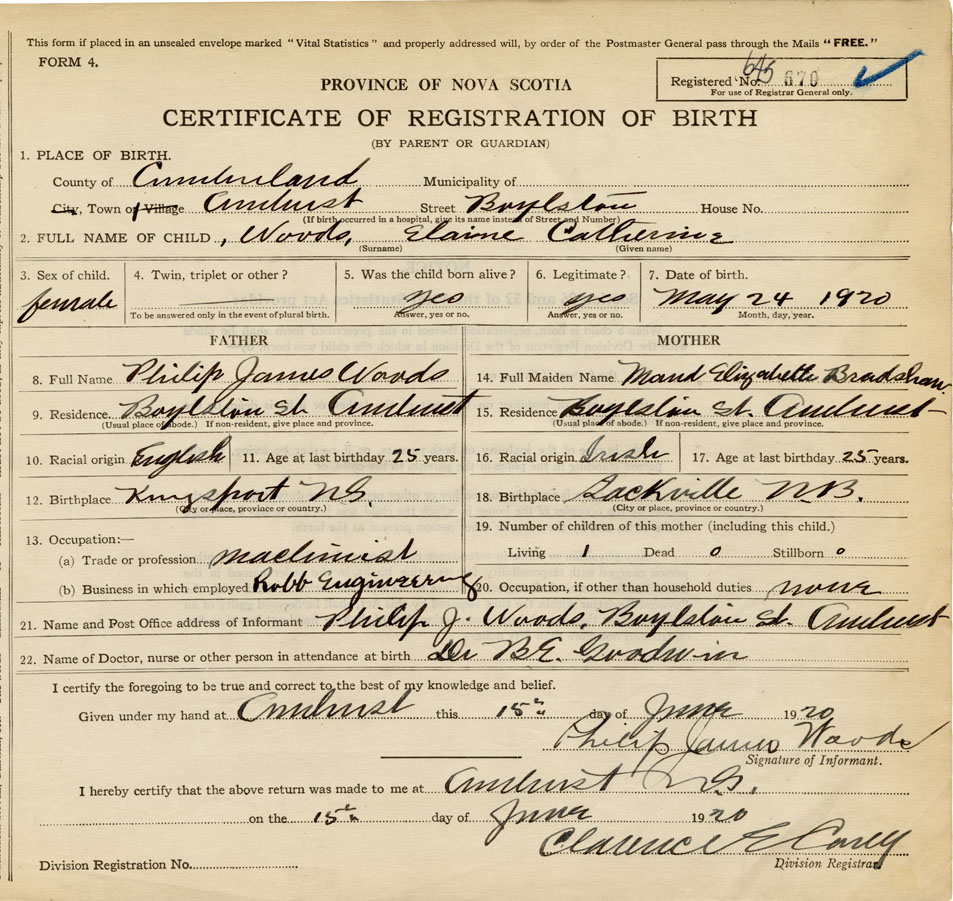 This form if placed in an unsealed envelope marked "Vital Statistics" and properly addressed will, by order of the Postmaster General pass through the Mails "FREE."
FORM 4.
PROVINCE OF NOVA SCOTIA
Registered No. 645 670
For use of Registrar General only.
CERTIFICATE OF REGISTRATION OF BIRTH
(BY PARENT OR GUARDIAN)
1. PLACE OF BIRTH.
County of Cumberland Municipality of
City, Town of Village Amherst Street Boylston House No.
(If birth occurred in a hospital, give its name instead of Street and Number)
2. FULL NAME OF CHILD, Woods, Elaine Catherine
(Surname) (Given name)
3. Sex of child. 4. Twin, triplet or other? 5. Was the child born alive? 6. Legitimate? 7. Date of birth.
female yes yes May 24 1920
To be answered only in the event of plural birth. Answer, yes or no. Answer, yes or no. Month, day, year.
FATHER MOTHER
8. Full Name Philip James Woods 14. Full Maiden Name Maud Elizabeth Bradshaw
9. Residence. Boylston St. Amherst 15. Residence Boylston St. Amherst
(Usual place of abode.) If non-resident, give place and province. (Usual place of abode.) If non-resident, give place and province.
10. Racial origin English 11. Age at last birthday 25 years. 16. Racial origin Irish 17. Age at last birthday 25 years.
12. Birthplace Kingsport N.S. 18. Birthplace Sackville N.B.
(City or place, province or country.) (City or place, province or country.)
13. Occupation:— 19. Number of children of this mother (including this child.)
(a) Trade or profession machinist Living 1 Dead 0 Stillborn 0
(b) Business in which employed Robb Engineering 20. Occupation, if other than household duties none
21. Name and Post Office address of Informant Philip J. Woods, Boylston St. Amherst
22. Name of Doctor, nurse or other person in attendance at birth Dr B.E. Goodwin
I certify the foregoing to be true and correct to the best of my knowledge and belief.
Given under my hand at Amherst this 15th day of June 1920
Philip James Woods
Signature of Informant.
I hereby certify that the above return was made to me at Amherst N.S.
on the 15th day of June 1920
Clarence E Casey
Division Registration No. Division Registrar